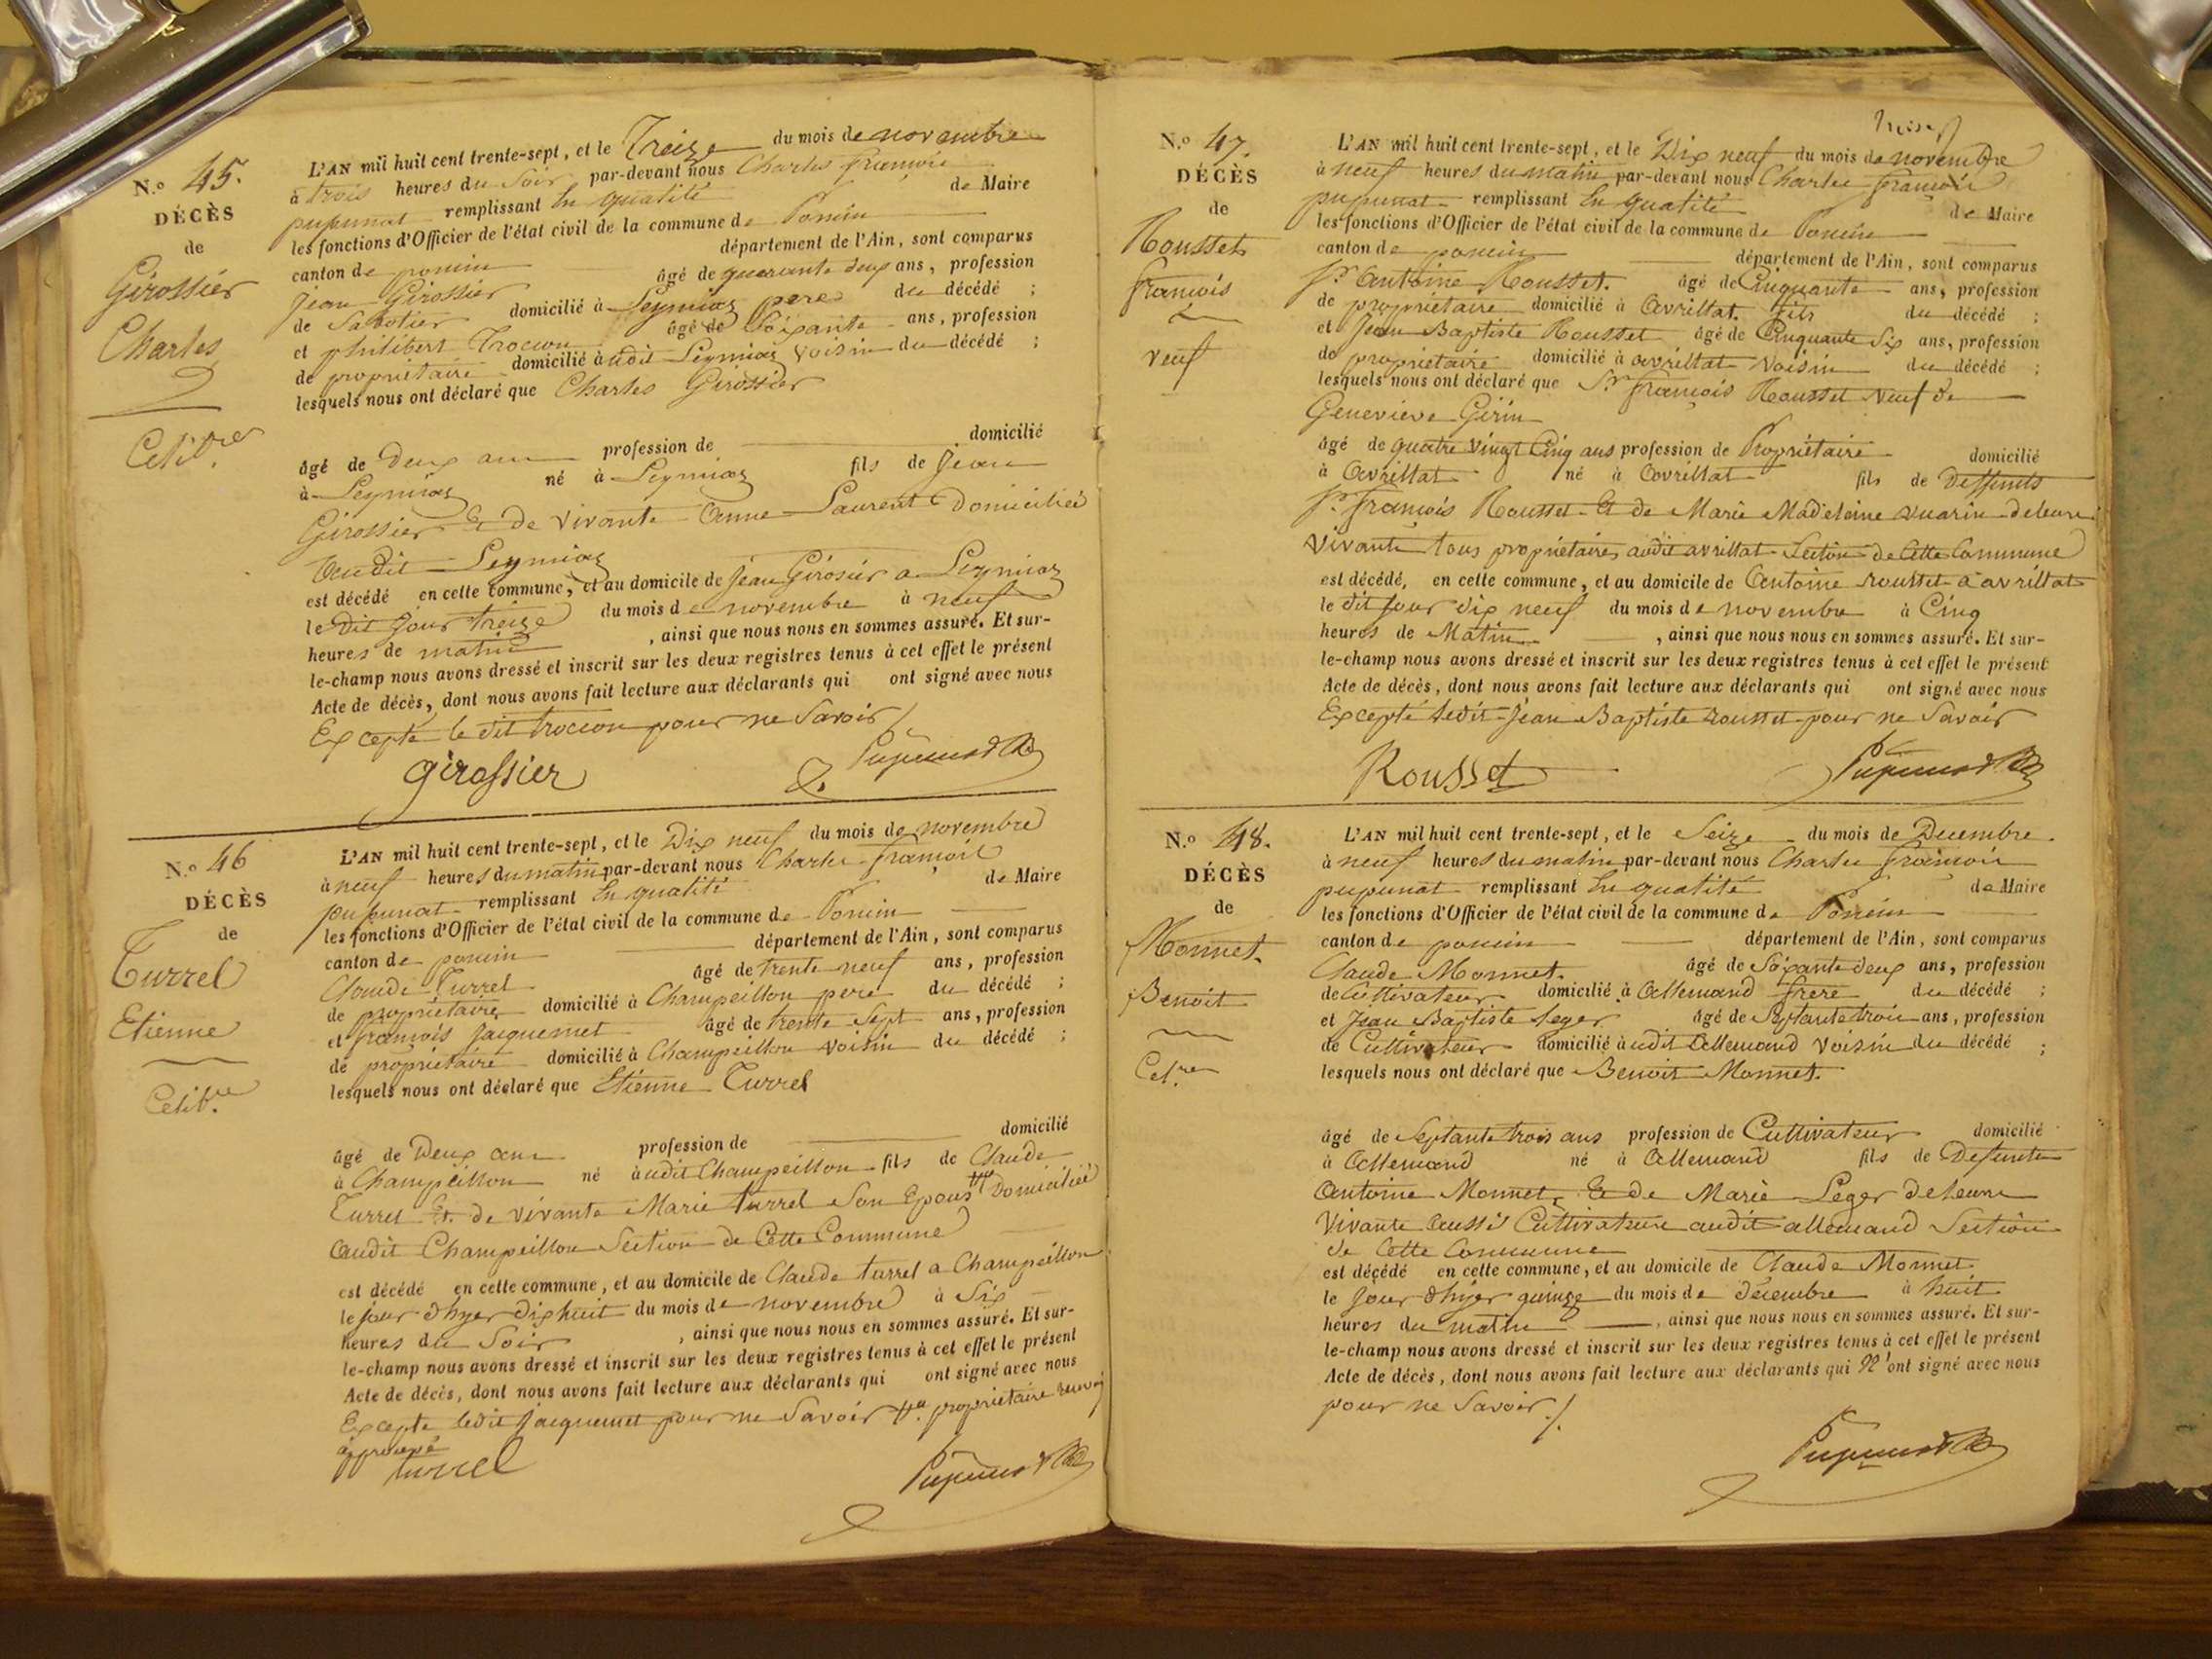 N.º 45.
DÉCÈS
de
Girossier
Charles
Celib.re
L'AN mil huit cent trente-sept, et le Treize du mois de novembre
à trois heures du Soir par-devant nous Charles françois
pupunat remplissant En qualité de Maire
les fonctions d'Officier de l'état civil de la commune de Poncin
canton de poncin département de l'Ain, sont comparus
Jean Girossier âgé de quarante deux ans, profession
de Sabotier domicilié à Leymiaz pere du décédé ;
et philibert Trocion âgé de Soixante ans, profession
de propriétaire domicilié audit Leymiaz voisin du décédé ;
lesquels nous ont déclaré que Charles Girossier
âgé de Deux ans profession de domicilié
à Leymiaz né à Leymiaz fils de Jean
Girossier Et de vivante Anne Laurent Domiciliés
audit Leymiaz
est décédé en cette commune, et au domicile de Jean Girosier a Leymiaz
le dit jour treize du mois de novembre à neuf
heures de matin , ainsi que nous nous en sommes assuré. Et sur-
le-champ nous avons dressé et inscrit sur les deux registres tenus à cet effet le présent
Acte de décès, dont nous avons fait lecture aux déclarants qui ont signé avec nous
Excepté le dit trocion pour ne Savoir
girossier Pupunat
N.º 46
DÉCÈS
de
Turrel
Etienne
Celib.re
L'AN mil huit cent trente-sept, et le Dix neuf du mois de novembre
à neuf heures du matin par-devant nous Charles françois
pupunat remplissant En qualité de Maire
les fonctions d'Officier de l'état civil de la commune de Poncin
canton de poncin département de l'Ain, sont comparus
Claude Turrel âgé de trente neuf ans, profession
de propriétaire domicilié à Champeillon pere du décédé ;
et françois Jacquemet âgé de trente Sept ans, profession
de propriétaire domicilié à Champeillon voisin du décédé ;
lesquels nous ont déclaré que Etienne Turrel
âgé de Deux ans profession de domicilié
à Champeillon né audit Champeillon fils de Claude
Turrel Et de vivante Marie turrel Son Epouse Domiciliés
audit Champeillon Section de Cette Commune
est décédé en cette commune, et au domicile de Claude turrel a Champeillon
le jour d'hyer dix huit du mois de novembre à Six
heures du Soir , ainsi que nous nous en sommes assuré. Et sur-
le-champ nous avons dressé et inscrit sur les deux registres tenus à cet effet le présent
Acte de décès, dont nous avons fait lecture aux déclarants qui ont signé avec nous
Excepte ledit jacquemet pour ne Savoir propriétaire renvoi
approuvé
turrel Pupunat
N.º 47.
DÉCÈS
de
Rousset
françois
veuf
L'AN mil huit cent trente-sept, et le Dix neuf du mois de novembre
à neuf heures du matin par-devant nous Charles françois
pupunat remplissant En qualité de Maire
les fonctions d'Officier de l'état civil de la commune de Poncin
canton de poncin département de l'Ain, sont comparus
S.r Antoine Rousset. âgé de Cinquante ans, profession
de propriétaire domicilié à Avrillat. fils du décédé ;
et Jean Baptiste Rousset âgé de Cinquante Six ans, profession
de propriétaire domicilié à avrillat voisin du décédé ;
lesquels nous ont déclaré que S.r françois Rousset veuf de
Geneviève Girin
âgé de quatre vingt Cinq ans profession de Propriétaire domicilié
à Avrillat né à Avrillat fils de Deffunts
S.r françois Rousset Et de Marie Madeleine vuarin de leure
Vivante tous propriétaires audit avrillat Section de Cette Commune
est décédé, en cette commune, et au domicile de Antoine rousset a avrillat
le dit jour dix neuf du mois de novembre à Cinq
heures de Matin , ainsi que nous nous en sommes assuré. Et sur-
le-champ nous avons dressé et inscrit sur les deux registres tenus à cet effet le présent
Acte de décès, dont nous avons fait lecture aux déclarants qui ont signé avec nous
Excepté ledit Jean Baptiste rousset pour ne Savoir
Rousset Pupunat
N.º 48.
DÉCÈS
de
Monnet.
Benoit
Cel.re
L'AN mil huit cent trente-sept, et le Seize du mois de Decembre
à neuf heures du matin par-devant nous Charles françois
pupunat remplissant En qualité de Maire
les fonctions d'Officier de l'état civil de la commune de Poncin
canton de poncin département de l'Ain, sont comparus
Claude Monnet. âgé de Soixante deux ans, profession
de Cultivateur domicilié à Allemand frere du décédé ;
et Jean Baptiste Leger âgé de Septante trois ans, profession
de Cultivateur domicilié audit Allemand voisin du décédé ;
lesquels nous ont déclaré que Benoit Monnet.
âgé de Septante trois ans profession de Cultivateur domicilié
à Allemand né à Allemand fils de Defunts
Antoine Monnet, Et de Marie Leger de leure
Vivante aussi Cultivateurs audit allemand Section
de Cette Commune
est décédé en cette commune, et au domicile de Claude Monnet
le jour d'hyer quinze du mois de décembre à huit
heures du matin , ainsi que nous nous en sommes assuré. Et sur-
le-champ nous avons dressé et inscrit sur les deux registres tenus à cet effet le présent
Acte de décès, dont nous avons fait lecture aux déclarants qui N'ont signé avec nous
pour ne Savoir
Pupunat